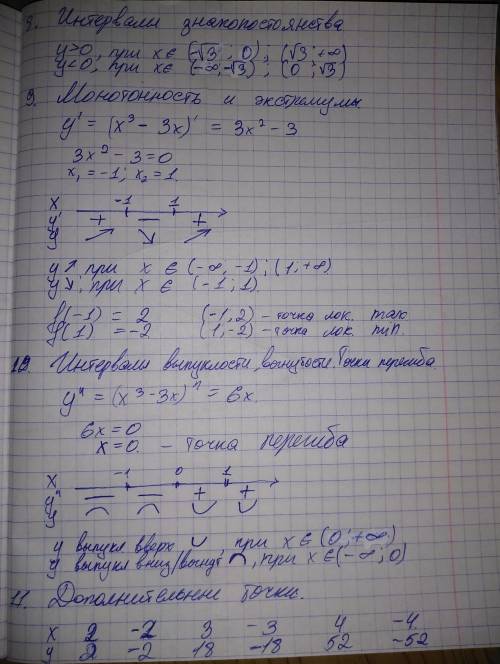 8. Интервалы знакопостоянства
y>0, при x∈ (-√3 ; 0) ; (√3 ; +∞)
y<0, при x∈ (-∞; -√3) ; (0 ; √3)
9. Монотонность и экстремумы
y' = (x³ - 3x)' = 3x² - 3
3x² - 3 = 0
x₁ = -1; x₂ = 1.
x -1 1
y' + — +
y ↗ ↘ ↗
y ↗, при x ∈ (-∞, -1) ; (1, +∞)
y ↘, при x ∈ (-1 ; 1)
f(-1) = 2 (-1, 2) - точка лок. max
f(1) = -2 (1, -2) - точка лок. min
10. Интервалы выпуклости, вогнутости. Точки перегиба.
y" = (x³ - 3x)" = 6x.
6x = 0
x = 0. - точка перегиба
x -1 0 1
y" — — + +
y ⌒ ⌒ ◡ ◡
y выпукл вверх ◡, при x∈ (0 ; +∞)
y выпукл вниз/вогнут ⌒, при x∈ (-∞; 0)
11. Дополнительные точки.
x 2 -2 3 -3 4 -4
y 2 -2 18 -18 52 -52